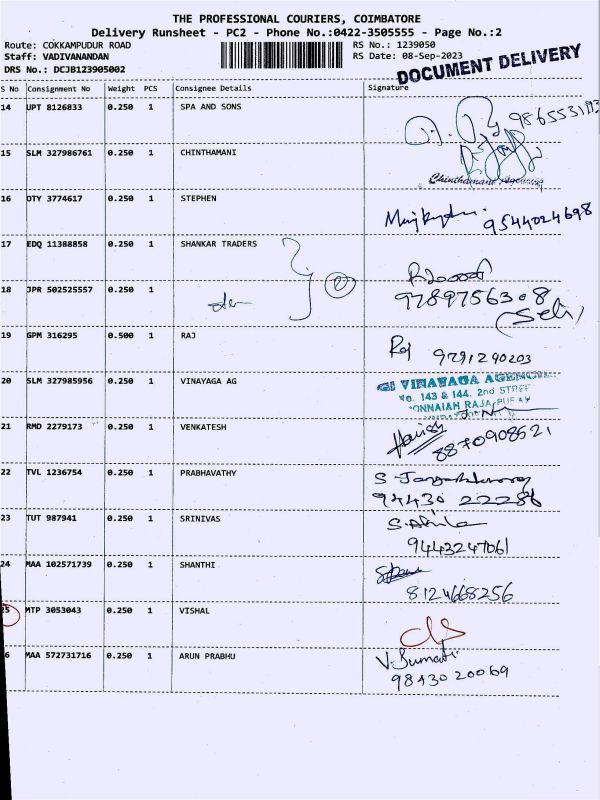 THE PROFESSIONAL COURIERS, COIMBATORE
Delivery Runsheet - PC2 - Phone No.:0422-3505555 - Page No.:2
Route: COKKAMPUDUR ROAD RS No.: 1239050
Staff: VADIVANANDAN RS Date: 08-Sep-2023
DRS No.: DCJB123905002
DOCUMENT DELIVERY
S No Consignment No Weight PCS Consignee Details Signature
14 UPT 8126833 0.250 1 SPA AND SONS
15 SLM 327986761 0.250 1 CHINTHAMANI
Chinthamani Agencies
16 OTY 3774617 0.250 1 STEPHEN
9544024698
17 EDQ 11388858 0.250 1 SHANKAR TRADERS
18 JPR 502525557 0.250 1
9789756308
(Selvi)
19 GPM 316295 0.500 1 RAJ Raj
9791290203
20 SLM 327985956 0.250 1 VINAYAGA AG
VINAYAGA AGENCIE
No. 143 & 144, 2nd STREET
PONNAIAH RAJA PURAM
21 RMD 2279173 0.250 1 VENKATESH
8870908521
22 TVL 1236754 0.250 1 PRABHAVATHY
94430 22286
23 TUT 987941 0.250 1 SRINIVAS S.Akila
9443247061
24 MAA 102571739 0.250 1 SHANTHI
8124668256
25 MTP 3053043 0.250 1 VISHAL
6 MAA 572731716 0.250 1 ARUN PRABHU V.Sumathi
98430 20069